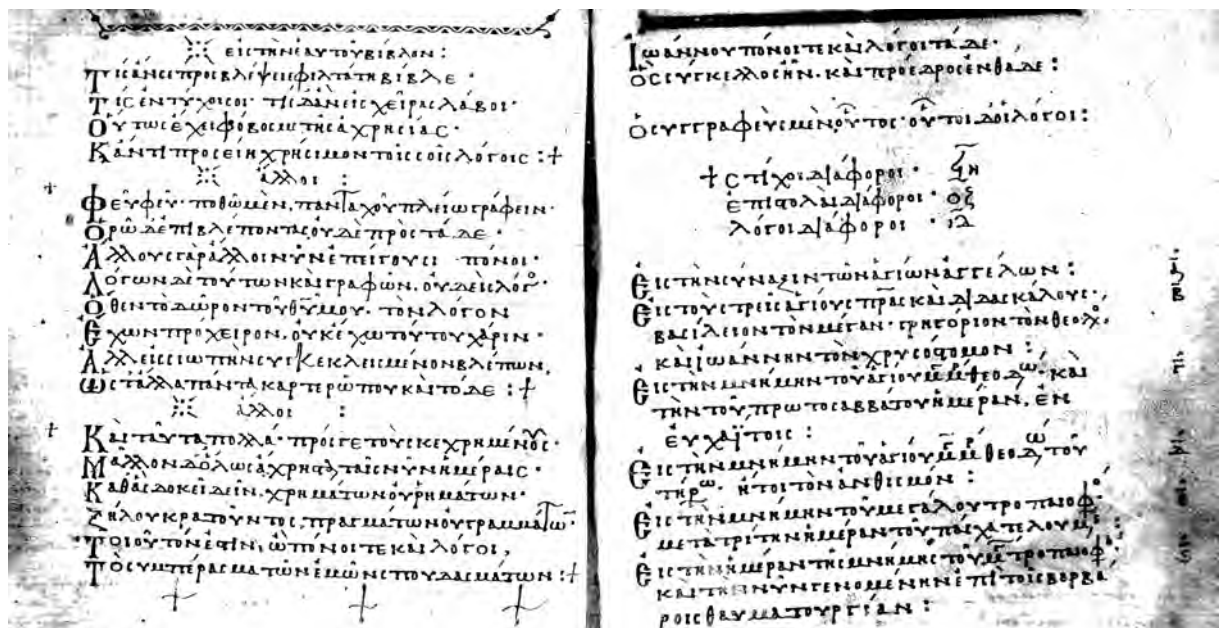 εἰς τὴν ἑαυτοῦ βίβλον:
Τίς ἄν σε προσβλέψειε φιλτάτη βίβλε·
Τίς ἐντύχοι σοι· τίς δ' ἂν εἰς χεῖρας λάβοι·
Οὕτως ἔχει φόβος τῆς ἀχρηστίας·
Κἄν τι προσείη χρήσιμον τοῖς σοῖς λόγοις:+
ἄλλοι:
Φεῦ φεῦ· ποθῶμεν, πανταχοῦ πλείω γράφειν·
Ὁρῶ δ' ἐπιβλέποντας οὐδὲ πρὸς τάδε·
Ἄλλους γὰρ ἄλλοι νῦν ἐπείγουσι πόνοι·
Λόγων δὲ τούτων καὶ γραφῶν, οὐδεὶς λόγο·
Ὅθεν τὸ δῶρον τοῦ θῡ μου, τὸν λόγον
Ἔχων πρόχειρον, οὐκ ἔχω τούτου χάριν·
Ἀλλ' εἰς σιωπὴν συγκεκλεισμένον βλέπων,
Ὡς τἄλλα πάντα καρτερῶ που καὶ τόδε:+
ἄλλοι:
Καὶ ταῦτα πολλά· πρός γε τοὺς κεχρημένους·
Μᾶλλον δ' ὅλως ἄχρηστα ταῖς νῦν ἡμέραις·
Καθὰς δοκεῖ δεῖν, χρημάτων οὐ ῥημάτων·
Ζήλου κρατοῦντος, πραγμάτων οὐ γραμμάτων·
Τοιοῦτόν ἐστιν, ὦ πόνοι τε καὶ λόγοι,
Τὸ συμπέρασμα τῶν ἐμῶν σπουδασμάτων:+
Ἰωάννου πόνοι τε καὶ λόγοι τάδε·
Ὃς σύγκελλος ἦν. καὶ πρόεδρος ἐνθάδε:
Ὁ συγγραφεὺς μὲν οὗτος· οὗτοι δ' οἱ λόγοι:
+ στίχοι διάφοροι· ϟη
ἐπιστολαὶ διάφοροι· οζ
λόγοι διάφοροι· ιδ
Εἰς τὴν σύναξιν τῶν ἁγίων ἀγγέλων:
Εἰς τοὺς τρεῖς ἁγίους πρ̅ας καὶ διδασκάλους·
βασίλειον τὸν μέγαν· γρηγόριον τὸν θεολό,
καὶ ἰωάννην τὸν χρυσόστομον:
Εἰς τὴν μνήμην τοῦ ἁγίου μμρ θεοδώ· καὶ
τὴν τοῦ πρώτου σαββάτου ἡμέραν, ἐν
εὐχαΐτοις:
Εἰς τὴν μνήμην τοῦ ἁγίου μμρ θεοδώ τοῦ
τήρω· ἤτοι τὸν ἀνθισμόν:
Εἰς τὴν μνήμην τοῦ μεγάλου τροπαιοφό
μετὰ τρίτην ἡμέραν τοῦ πάσχα τελουμ:
Εἰς τὴν ἡμέραν τῆς μνήμης τοῦ μ τροπαιοφό:
καὶ τὴν νῦν γενομένην ἐπὶ τοῖς βαρβά
ροις θαυματουργίαν: